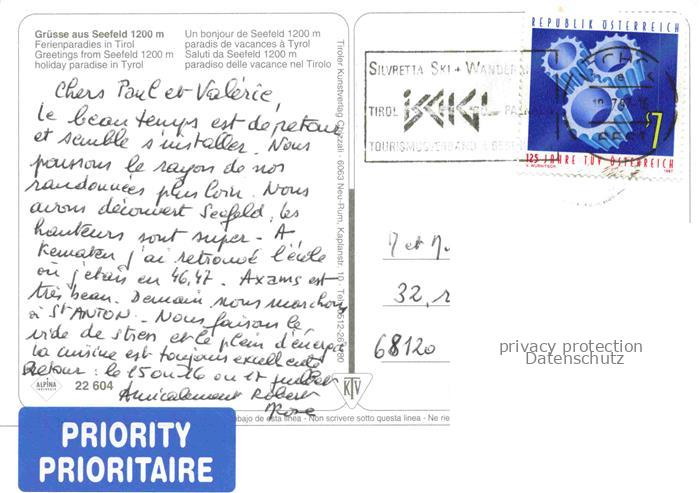 Grüsse aus Seefeld 1200 m
Ferienparadies in Tirol
Greetings from Seefeld 1200 m
holiday paradise in Tyrol
Un bonjour de Seefeld 1200 m
paradis de vacances à Tyrol
Saluti da Seefeld 1200 m
paradiso delle vacanze nel Tirolo
Chers Paul et Valérie,
Le beau temps est de retour
et semble s'installer. Nous
poussons le rayon de nos
randonnées plus loin. Nous
avons découvert Seefeld, les
hauteurs sont super. A
Kematen j'ai retrouvé l'école
où j'étais en 46,47. Axams est
très beau. Demain nous marchons
à St ANTON. Nous faisons le
vide de stress et le plein d'énergie
la cuisine est toujours excellente
Retour: le 15 ou 16 ou 17 juillet
Amicalement Robert
Rose
ALPINA
22 604
KTV
Tiroler Kunstverlag Chizzali - 6063 Neu-Rum, Kaplanstr. 10 - Tel.
abajo de esta linea - Non scrivere sotto questa linea - Ne
PRIORITY
PRIORITAIRE
SILVRETTA SKI + WANDER
TIROL
TOURISMUSVERBAND
REPUBLIK ÖSTERREICH
S7
125 JAHRE TÜV ÖSTERREICH
1997
M et M
32, r
68120
privacy protection
Datenschutz